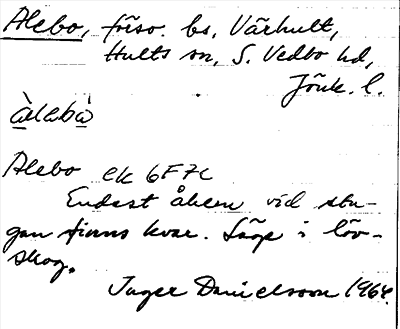 Alebo, försv. bs, Vårhult,
Hults sn, S. Vedbo hd,
Jönk. l.
àlebò
Alebo ek 6F7c
Endast åkern vid stu-
gan finns kvar. Låg i löv-
skog.
Inger Danielsson 1964.